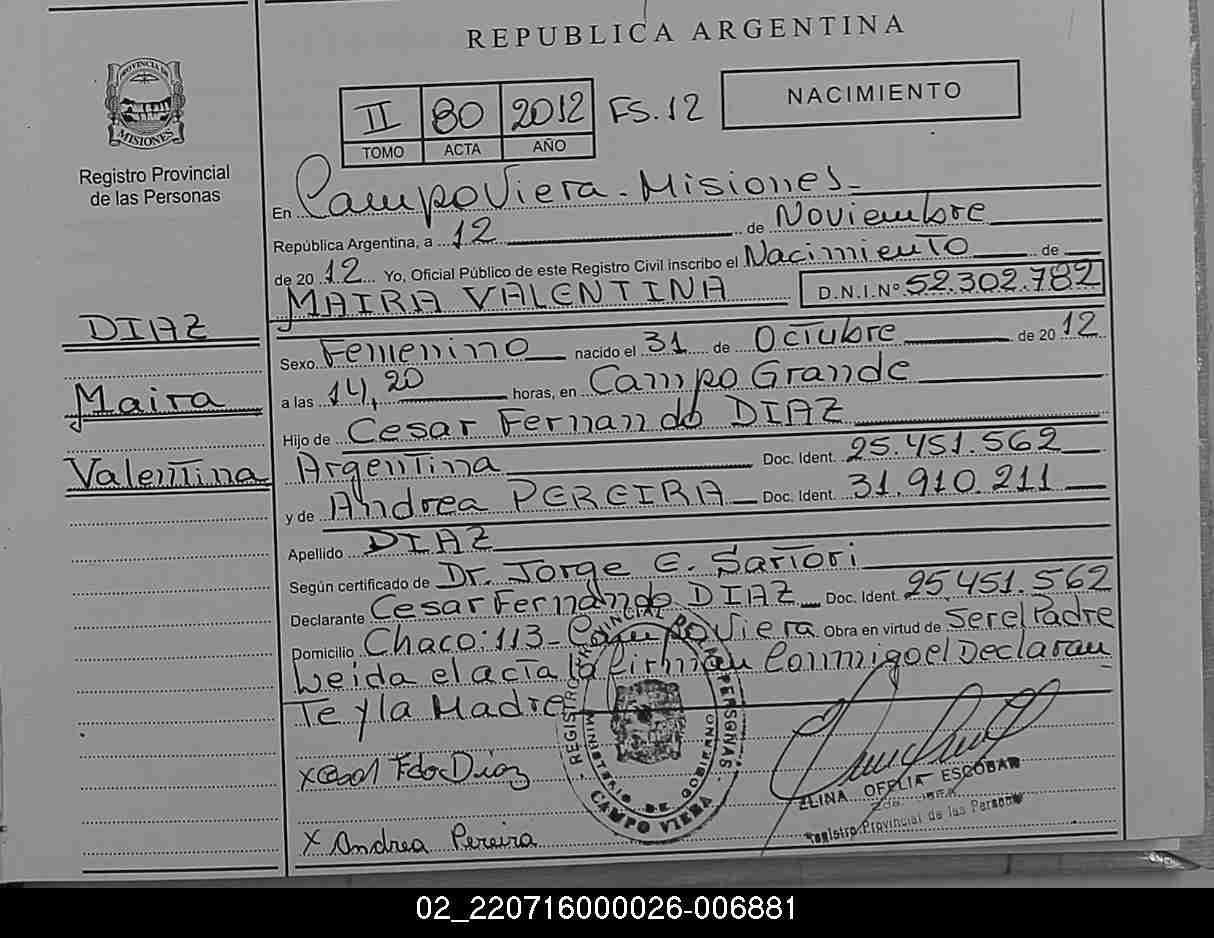 REPUBLICA ARGENTINA
PROVINCIA DE
MISIONES
Registro Provincial
de las Personas
II 80 2012 FS.12
TOMO ACTA AÑO
NACIMIENTO
En Campo Viera - Misiones -
República Argentina, a 12 de Noviembre
de 2012 Yo, Oficial Público de este Registro Civil inscribo el Nacimiento de
MAIRA VALENTINA D.N.I.Nº 52.302.782
DIAZ
Maira
Valentina
Sexo Femenino nacido el 31 de Octubre de 2012
a las 14,20 horas, en Campo Grande
Hijo de Cesar Fernando DIAZ
Argentina Doc. Ident. 25.451.562
y de Andrea PEREIRA Doc. Ident. 31.910.211
Apellido DIAZ
Según certificado de Dr. Jorge E. Sartori
Declarante Cesar Fernando DIAZ Doc. Ident. 25.451.562
Domicilio Chaco: 113 - Campo Viera Obra en virtud de Ser el Padre
Leida el acta la firman Conmigo el Declaran
Te y la Madre
REGISTRO PROVINCIAL DE LAS PERSONAS
MINISTERIO DE GOBIERNO
CAMPO VIERA
x Cesar Fdo Diaz
ZLINA OFELIA ESCOBAR
Registro Provincial de las Personas
X Andrea Pereira
02_220716000026-006881